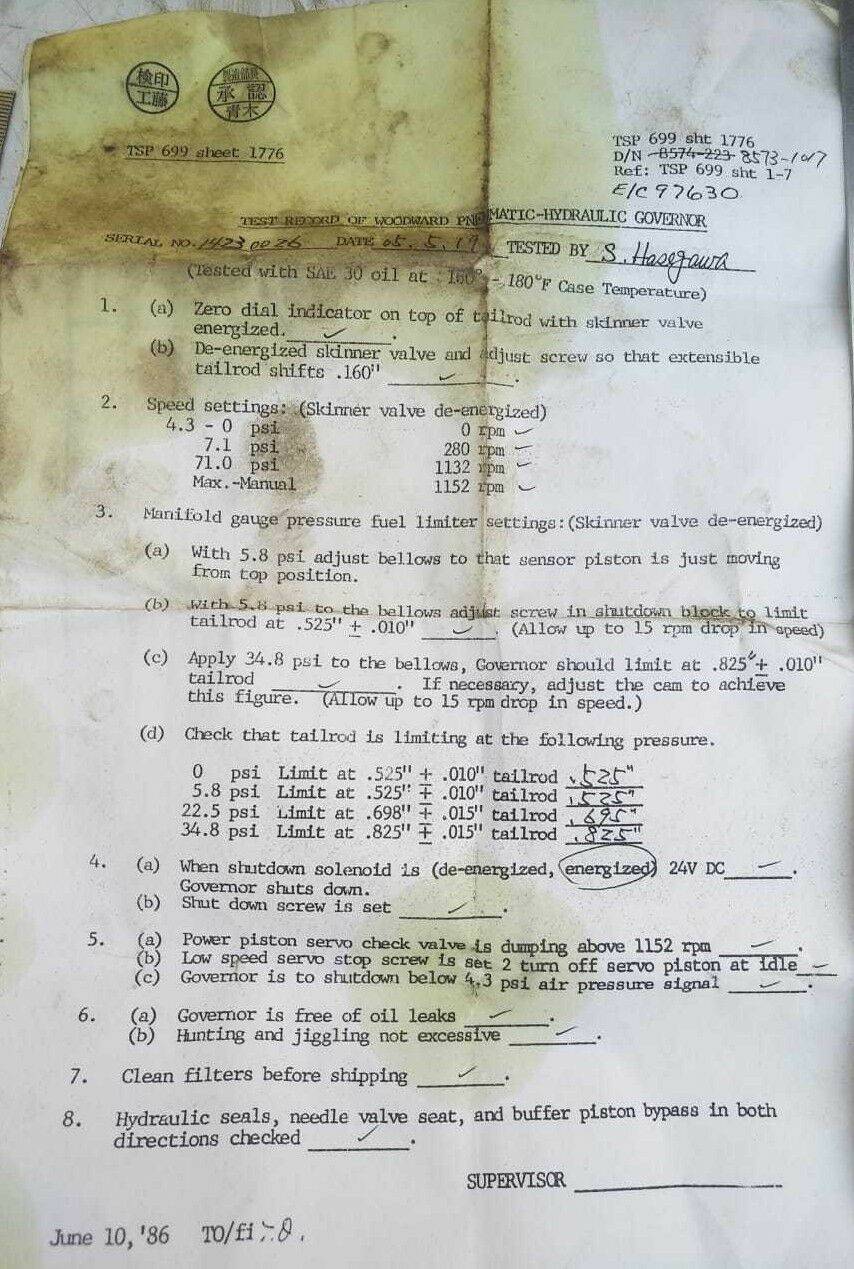 検印
工藤
承認
青木
TSP 699 sheet 1776
TSP 699 sht 1776
D/N 8574-223 8573-1017
Ref: TSP 699 sht 1-7
E/C 97630
TEST RECORD OF WOODWARD PNEUMATIC-HYDRAULIC GOVERNOR
SERIAL NO. 14230026 DATE 05.5.19 TESTED BY S. Hasegawa
(Tested with SAE 30 oil at 160° - 180°F Case Temperature)
1. (a) Zero dial indicator on top of tailrod with skinner valve
energized. ✓ .
(b) De-energized skinner valve and adjust screw so that extensible
tailrod shifts .160" ✓ .
2. Speed settings: (Skinner valve de-energized)
4.3 - 0 psi 0 rpm ✓
7.1 psi 280 rpm ✓
71.0 psi 1132 rpm ✓
Max.-Manual 1152 rpm ✓
3. Manifold gauge pressure fuel limiter settings:(Skinner valve de-energized)
(a) With 5.8 psi adjust bellows to that sensor piston is just moving
from top position.
(b) With 5.8 psi to the bellows adjust screw in shutdown block to limit
tailrod at .525" ± .010" ✓ . (Allow up to 15 rpm drop in speed)
(c) Apply 34.8 psi to the bellows, Governor should limit at .825" ± .010"
tailrod ✓ . If necessary, adjust the cam to achieve
this figure. (Allow up to 15 rpm drop in speed.)
(d) Check that tailrod is limiting at the following pressure.
0 psi Limit at .525" ± .010" tailrod .525"
5.8 psi Limit at .525" ± .010" tailrod .525"
22.5 psi Limit at .698" ± .015" tailrod .695"
34.8 psi Limit at .825" ± .015" tailrod .825"
4. (a) When shutdown solenoid is (de-energized, energized) 24V DC ✓ .
Governor shuts down.
(b) Shut down screw is set ✓ .
5. (a) Power piston servo check valve is dumping above 1152 rpm ✓ .
(b) Low speed servo stop screw is set 2 turn off servo piston at idle ✓
(c) Governor is to shutdown below 4.3 psi air pressure signal ✓ .
6. (a) Governor is free of oil leaks ✓ .
(b) Hunting and jiggling not excessive ✓ .
7. Clean filters before shipping ✓ .
8. Hydraulic seals, needle valve seat, and buffer piston bypass in both
directions checked ✓ .
SUPERVISOR
June 10, '86 TO/fi